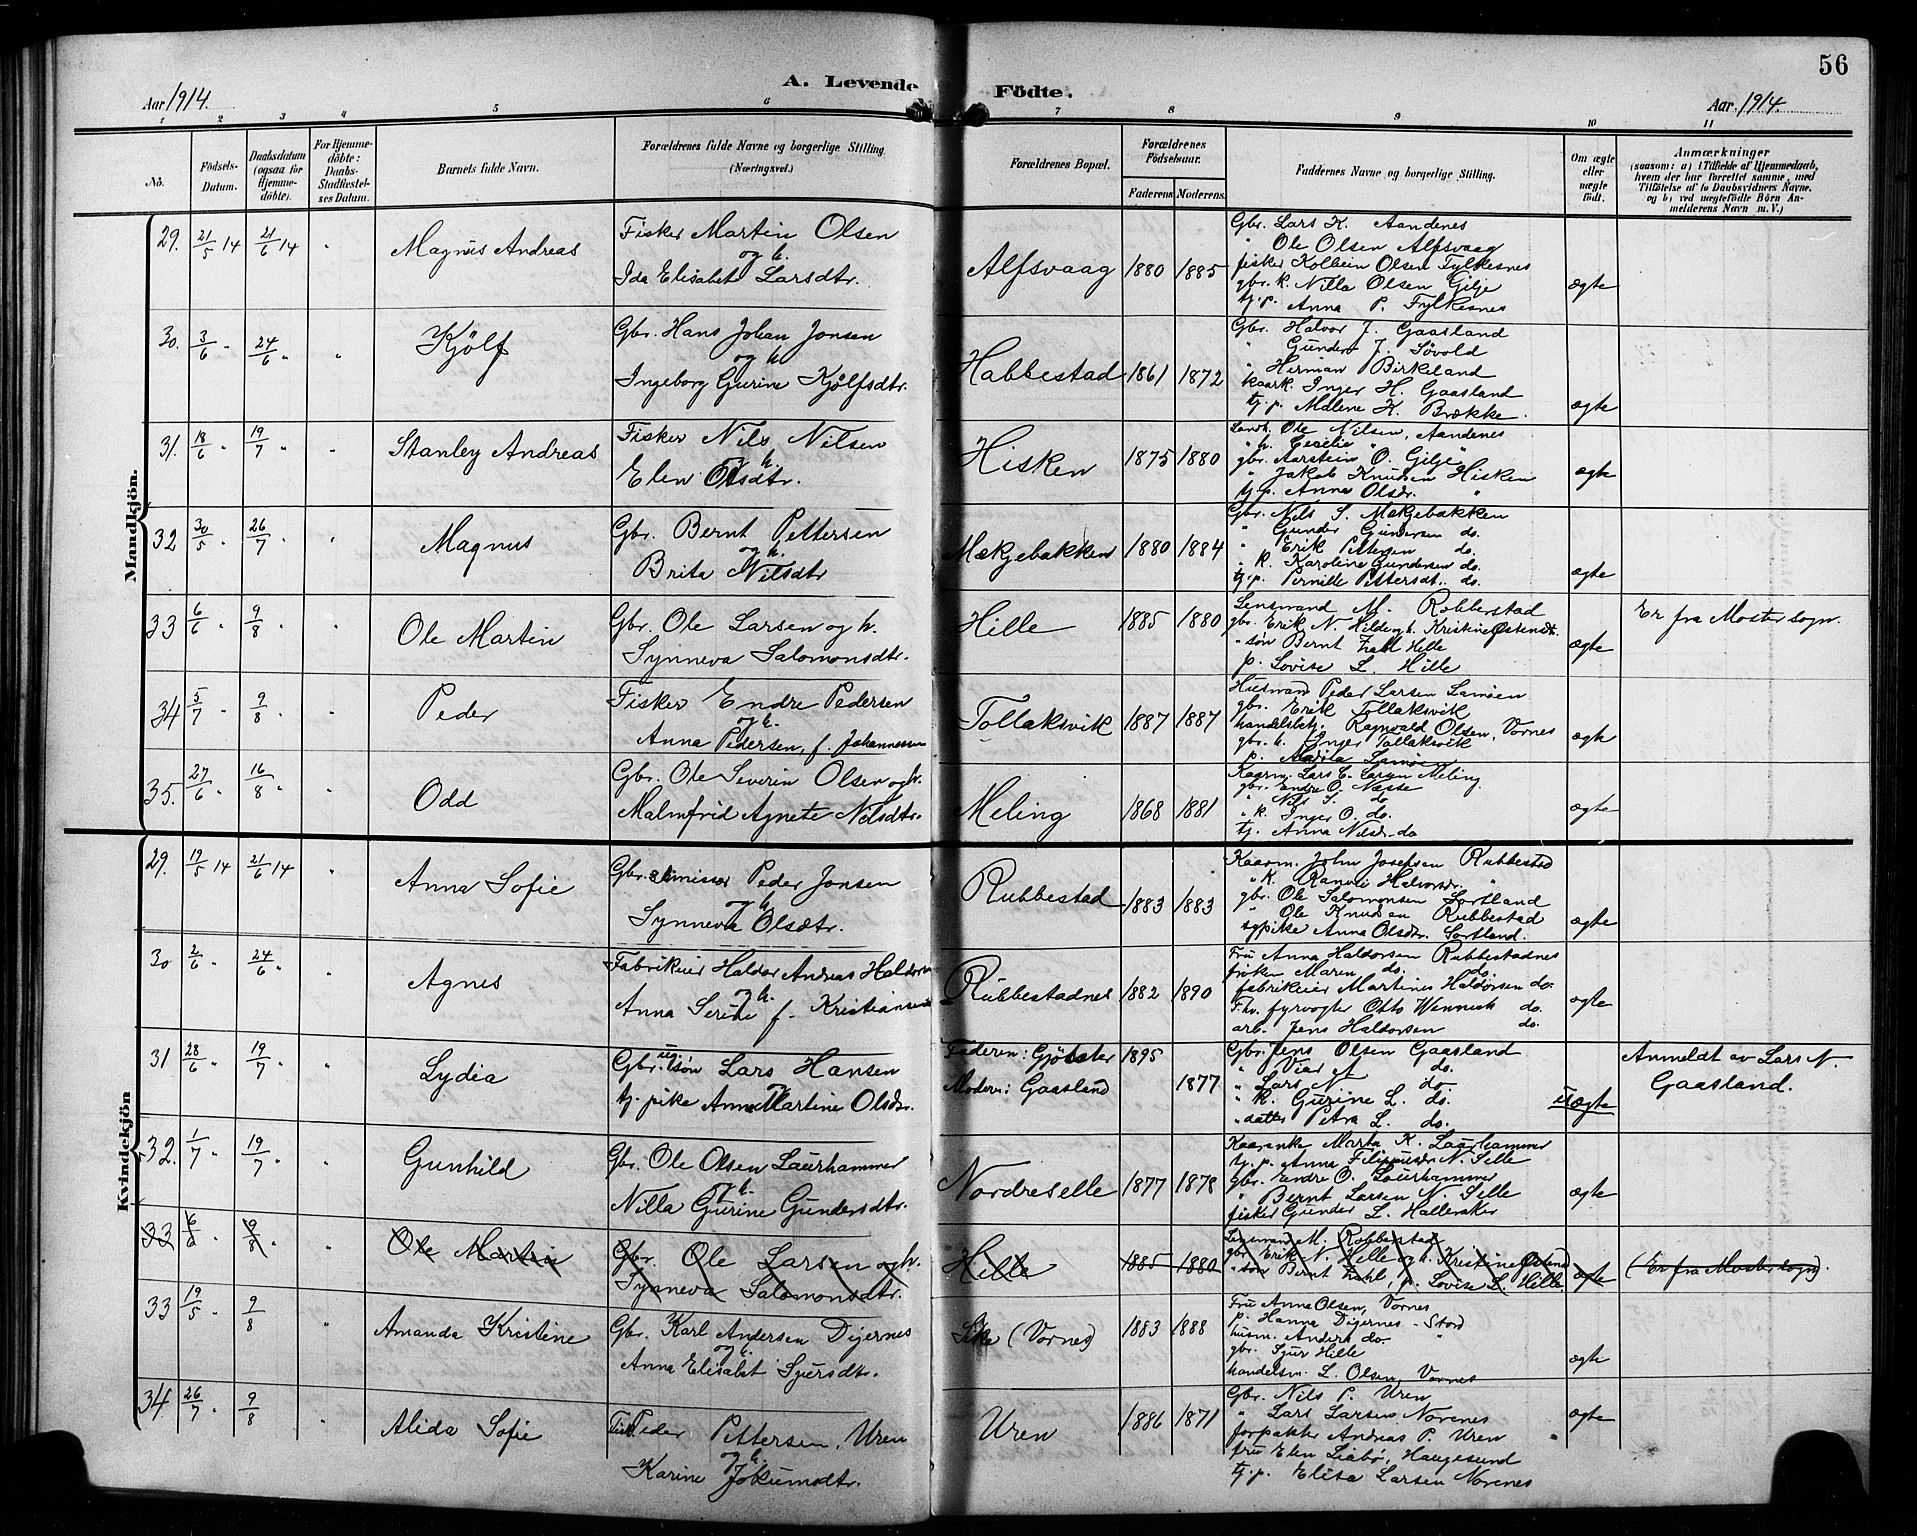 56
A. Levende Födte.
Aar 1914.
Aar 1914.
1 2 3 4 5 6 7 8 9 10 11
No.
Födsels-Datum.
Daabsdatum (ogsaa for Hjemmedöbte).
For Hjemmedöbte: Daabs-Stadfæstelses Datum.
Barnets fulde Navn.
Forældrenes fulde Navne og borgerlige Stilling (Næringsvei.)
Forældrenes Bopæl.
Forældrenes Födselsaar.
Faderens Moderens
Faddernes Navne og borgerlige Stilling.
Om ægte eller uægte födt.
Anmærkninger
(saasom: a) i Tilfælde af Hjemmedaab, hvem der har forrettet samme, med Tilföielse af to Daabsvidners Navne, og b) ved uægtefödte Börn Anmelderens Navn m. V.)
Mandkjön.
29. 21/5 14 21/6 14 " Magnus Andreas
Fisker Martin Olsen
og h.
Ida Elisabet Larsdtr.
Alfsvaag 1880 1885
Gbr. Lars K. Aandenes
" Ole Olsen Alfsvaag
fisker Kolbein Olsen Fylkesnes
gbr. k. Nilla Olsen Gilje
tj. p. Anna P. Fylkesnes
ægte
30. 3/6 " 24/6 " " Kjölf
Gbr. Hans Johan Jonsen
og h.
Ingeborg Gurine Kjölfsdtr.
Habbestad 1861 1872
Gbr. Halvor J. Gaasland
" Gunder J. Lövold
" Herman Birkeland
kaark. Inger H. Gaasland
tj. p. Malene K. Brække.
ægte
31. 18/6 " 19/7 " " Stanley Andreas
Fisker Nils Nilsen
og h.
Elen Olsdtr.
Hisken 1875 1880
Landh. Ole Nilsen, Aandenes
" h. Cecilie "
gbr. Aarstein O. Gilje
" Jakob Knudsen Hisken
tj. p. Anna Olsdr. "
ægte
32 30/5 " 26/7 " " Magnus
Gbr. Bernt Pettersen
og h.
Brita Nilsdtr
Mækjebakken 1880 1884
Gbr. Nils S. Mækjebakken
" Gunder Gundersen do.
" Erik Pettersen do.
" k. Karoline Gundersen do.
tj. p. Pernille Pettersdt. do.
ægte
33 6/6 " 9/8 " " Ole Martin
Gbr. Ole Larsen og h.
Synneva Salomonsdtr.
Hille 1885 1880
Lensmand M. Robberstad
gbr. Erik N. Hille og h. Kristine Østensdt.
" søn Bernt Zahl Hille
p. Lovise L. Hille
ægte
Er fra Moster sogn.
34 5/7 " 9/8 " " Peder
Fisker Endre Pedersen
og h.
Anna Pedersen, f. Johannessen
Tollaksvik 1887 1887
Husmand Peder Larsen Lamöen
gbr. Erik Tollaksvik
handelsbetj. Ragnvald Olsen, Vornes
gbr. h. Inger Tollaksvik
p. Lamöen
ægte
35. 27/6 " 16/8 " " Odd
Gbr. Ole Severin Olsen og h.
Malmfrid Agnete Nilsdtr.
Meling 1868 1881
Kaarm. Lars E. Larsen Meling.
gbr. Endre O. Næsse
" Nils S. do
" k. Inger O. do.
tj. Anna Nilsdr. do
ægte
Kvindekjön
29. 19/5 14 21/6 14 " Anna Sofie
Gbr. Peder Jonsen
og h.
Synneva Olsdtr.
Rubbestad 1883 1883
Kaarm. John Josefsen Rubbestad
" k. Ranvei Halvorsdr. "
gbr. Ole Salomonsen Sortland
" Ole Knudsen Rubbestad
sypike Anna Olsdr. Sortland.
ægte
30 2/6 " 24/6 " " Agnes
Fabrikeier Haldor Andreas Haldorsen
og h.
Anna Serine f. Kristiansen
Rubbestadnes 1882 1890
Fru Anna Haldorsen Rubbestadnes
frøken Maren do. do.
fabrikeier Martines Haldorsen do.
Fhv. fyrvogter Otto Wennich do.
arb. Jens Haldorsen do.
ægte
31 28/6 " 19/7 " " Lydia
Gbr. søn Lars Hansen
og
tj. pike Anna Martine Olsdr.
Faderen: Gjöd 1895
Modern: Gaasland 1877
Gbr. Jens Olsen Gaasland
" Viar N do.
" Lars N. do.
" k. Gurine L. do.
" datter Petra L. do.
uægte
Anmeldt av Lars N. Gaasland.
32. 1/7 " 19/7 " " Gunhild
Gbr. Ole Olsen Laurhammer
og h.
Nilla Gurine Gundersdtr.
Nordreselle 1877 1878
Kaarenke Marta K. Laurhammer
tj. p. Anna Filippusdr. N. Selle
Gbr. Endre O. Laurhammer
" Bernt Larsen N. Selle
fisker Gunder L. Halleraker
ægte
33 6/6 9/8 " " Ole Martin
Gbr. Ole Larsen og h.
Synneva Salomonsdtr.
Hille 1885 1880
Lensmand M. Robberstad
gbr. Erik N. Hille og h. Kristine Østensd
" søn Bernt Zahl, p. Lovise L. Hille
ægte
(Er fra Moster sogn).
33 19/5 9/8 " Amanda Kristine
Gbr. Karl Andersen Digernes
og h.
Anna Elisabet Sjursdtr.
(Vornes) 1883 1888
Fru Anna Olsen, Vornes
p. Hanna Digernes - Stord
husm. Anders do. "
gbr. Sjur Hille
handelsm. L. Olsen, Vornes
ægte
34 26/7 " 9/8 " Alida Sofie
Fisk. Peder Pettersen, Uren
og h.
Karine Jokumsdtr.
Uren 1886 1871
Gbr. Nils P. Uren
" Lars Larsen Norenes
forpakter Andreas P. Uren
fru Elen Liabø, Haugesund
tj. p. Elisa Larsen Norenes
ægte